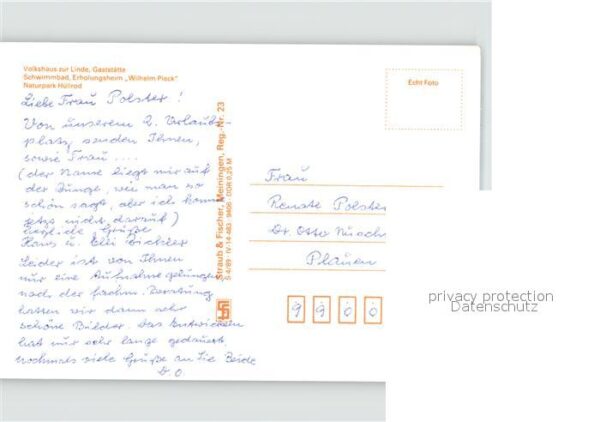 Volkshaus zur Linde, Gaststätte
Schwimmbad, Erholungsheim „Wilhelm Pieck"
Naturpark Hüllrod
Liebe Frau Polster!
Von unserem 2. Urlaubs-
platz senden Ihnen,
sowie Frau ....
(der Name liegt mir auf
der Zunge, wie man so
schön sagt, aber ich komm
jetzt nicht darauf)
herzliche Grüße
Hans u.
Leider ist von Ihnen
nur eine Aufnahme gelungen
nach der fachm. Beratung
hatten wir dann sehr
schöne Bilder. Das Entwickeln
hat nur sehr lange gedauert.
Nochmals viele Grüße an Sie Beide
D. O.
Straub & Fischer, Meiningen, Reg.-Nr. 23
S 4/89 · IV-14-483 DDR 0,25 M
Echt Foto
Frau
Renate Polster
Dr. Otto Nusch
Plauen
9 9 0 0
privacy protection
Datenschutz